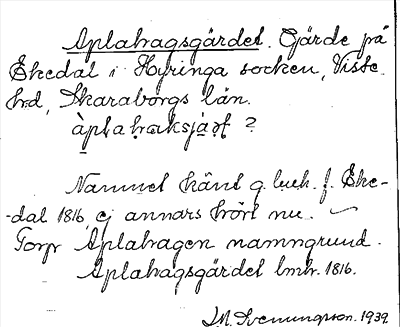 Aplahagsgärdet. Gärde på
Ekedal i Hyringa socken, Viste
hrd, Skaraborgs län.
àplahaksjáṣt ?
Namnet känt g. lmh. f. Eke-
-dal 1816 ej annars hört nu.
Torp Aplahagen namngrund.
Aplahagsgärdet lmhr. 1816.
J.M. Svenungsson. 1939